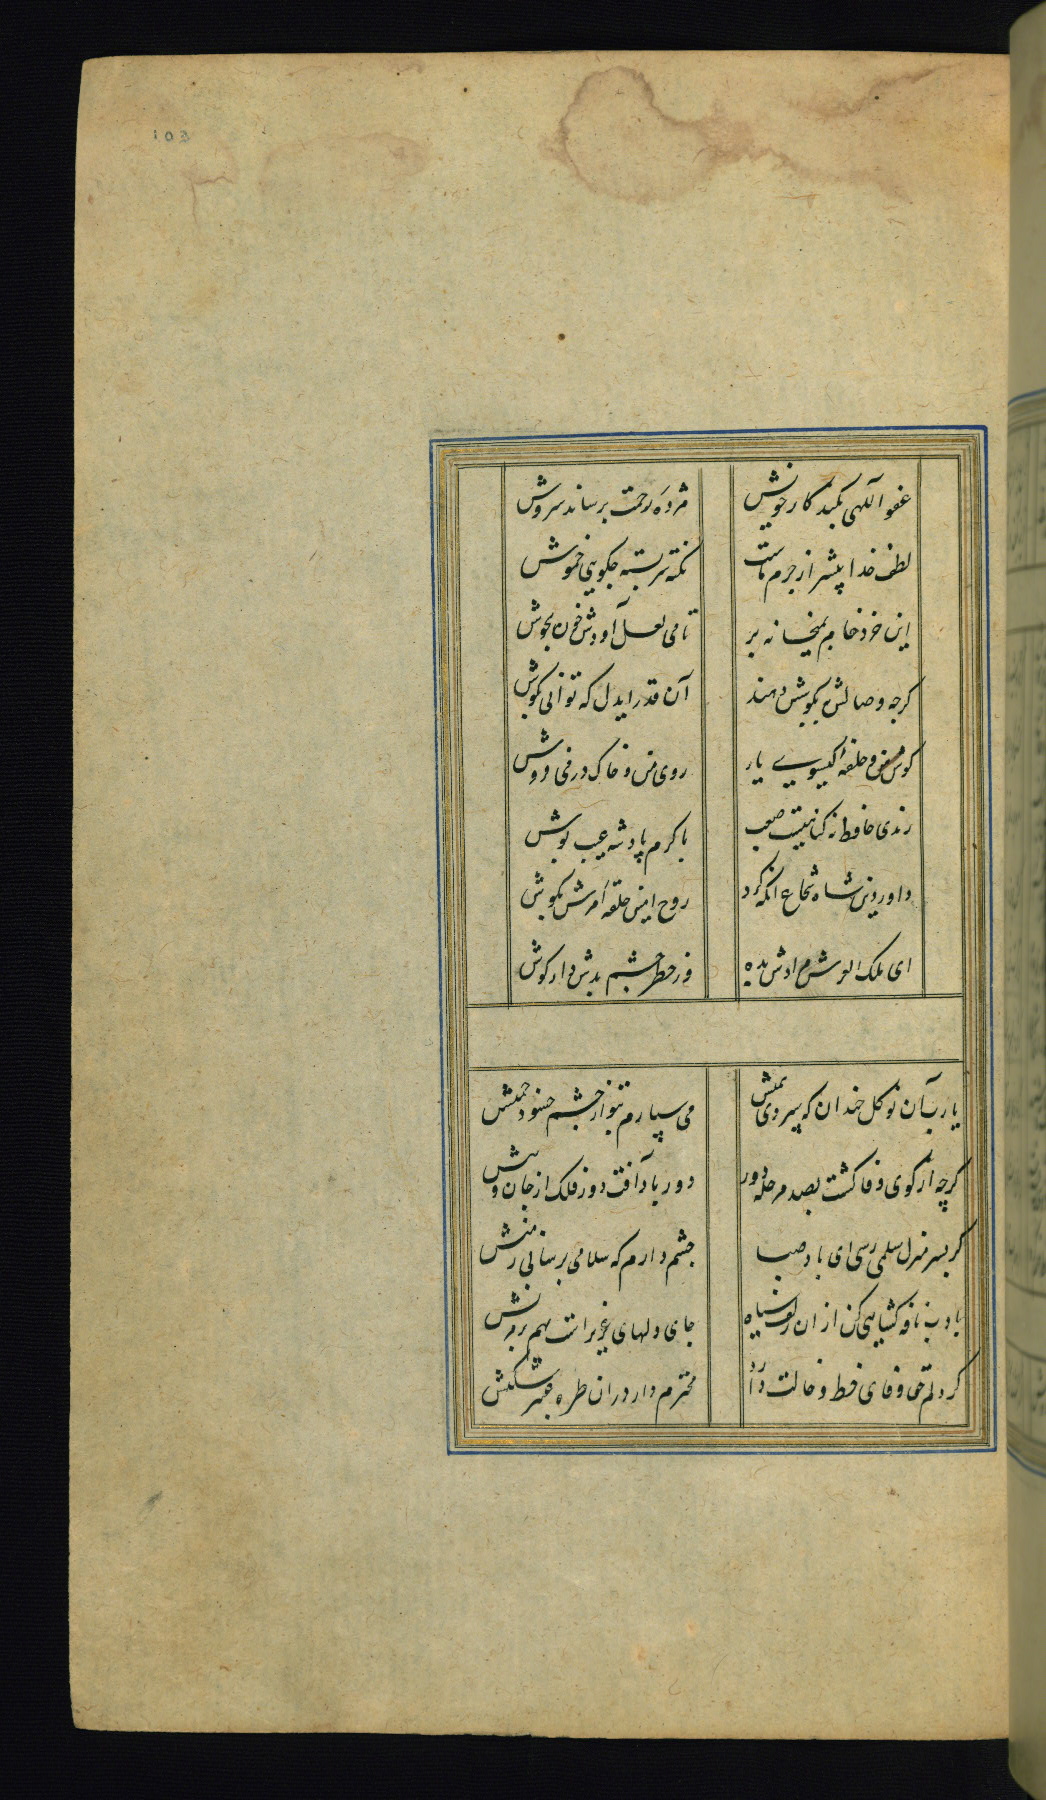 103
عفو الهی بکند کار خویش مژده رحمت برساند سروش
لطف خدا بیشتر از جرم ماست نکته سربسته چگویی خموش
این خرد خام بمیخانه بر تا می لعل آوردش خون بجوش
گرچه وصالش نه بکوشش دهند آن قدر ایدل که توانی بکوش
گوش من و حلقه گیسوی یار روی من و خاک در می فروش
رندی حافظ نه گناهیست صعب با کرم پادشه عیب پوش
داور دین شاه شجاع آنکه کرد روح امین حلقه امرش بگوش
ای ملک العرش مرادش بده وز خطر چشم بدش دار گوش
یارب آن نوگل خندان که سپردی بمنش می سپارم بتو از چشم حسود چمنش
گرچه از کوی وفا گشت بصد مرحله دور دور باد آفت دور فلک از جان و تنش
گر بسر منزل سلمی رسی ای باد صبا چشم دارم که سلامی برسانی ز منش
بادب نافه گشایی کن از ان زلف سیاه جای دلهای عزیز است بهم بر مزنش
گو دلم حق وفای خط و خالت دارد محترم دار در ان طره عنبر شکنش